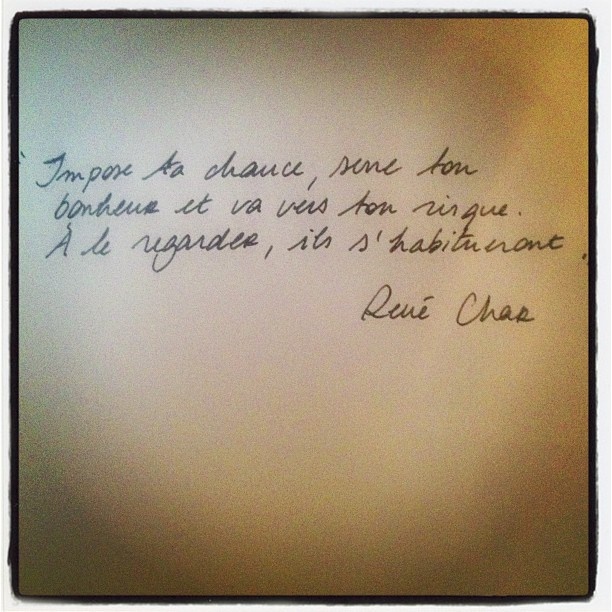 Impose ta chance, serre ton
bonheur et va vers ton risque.
À le regarder, ils s'habitueront.
René Char